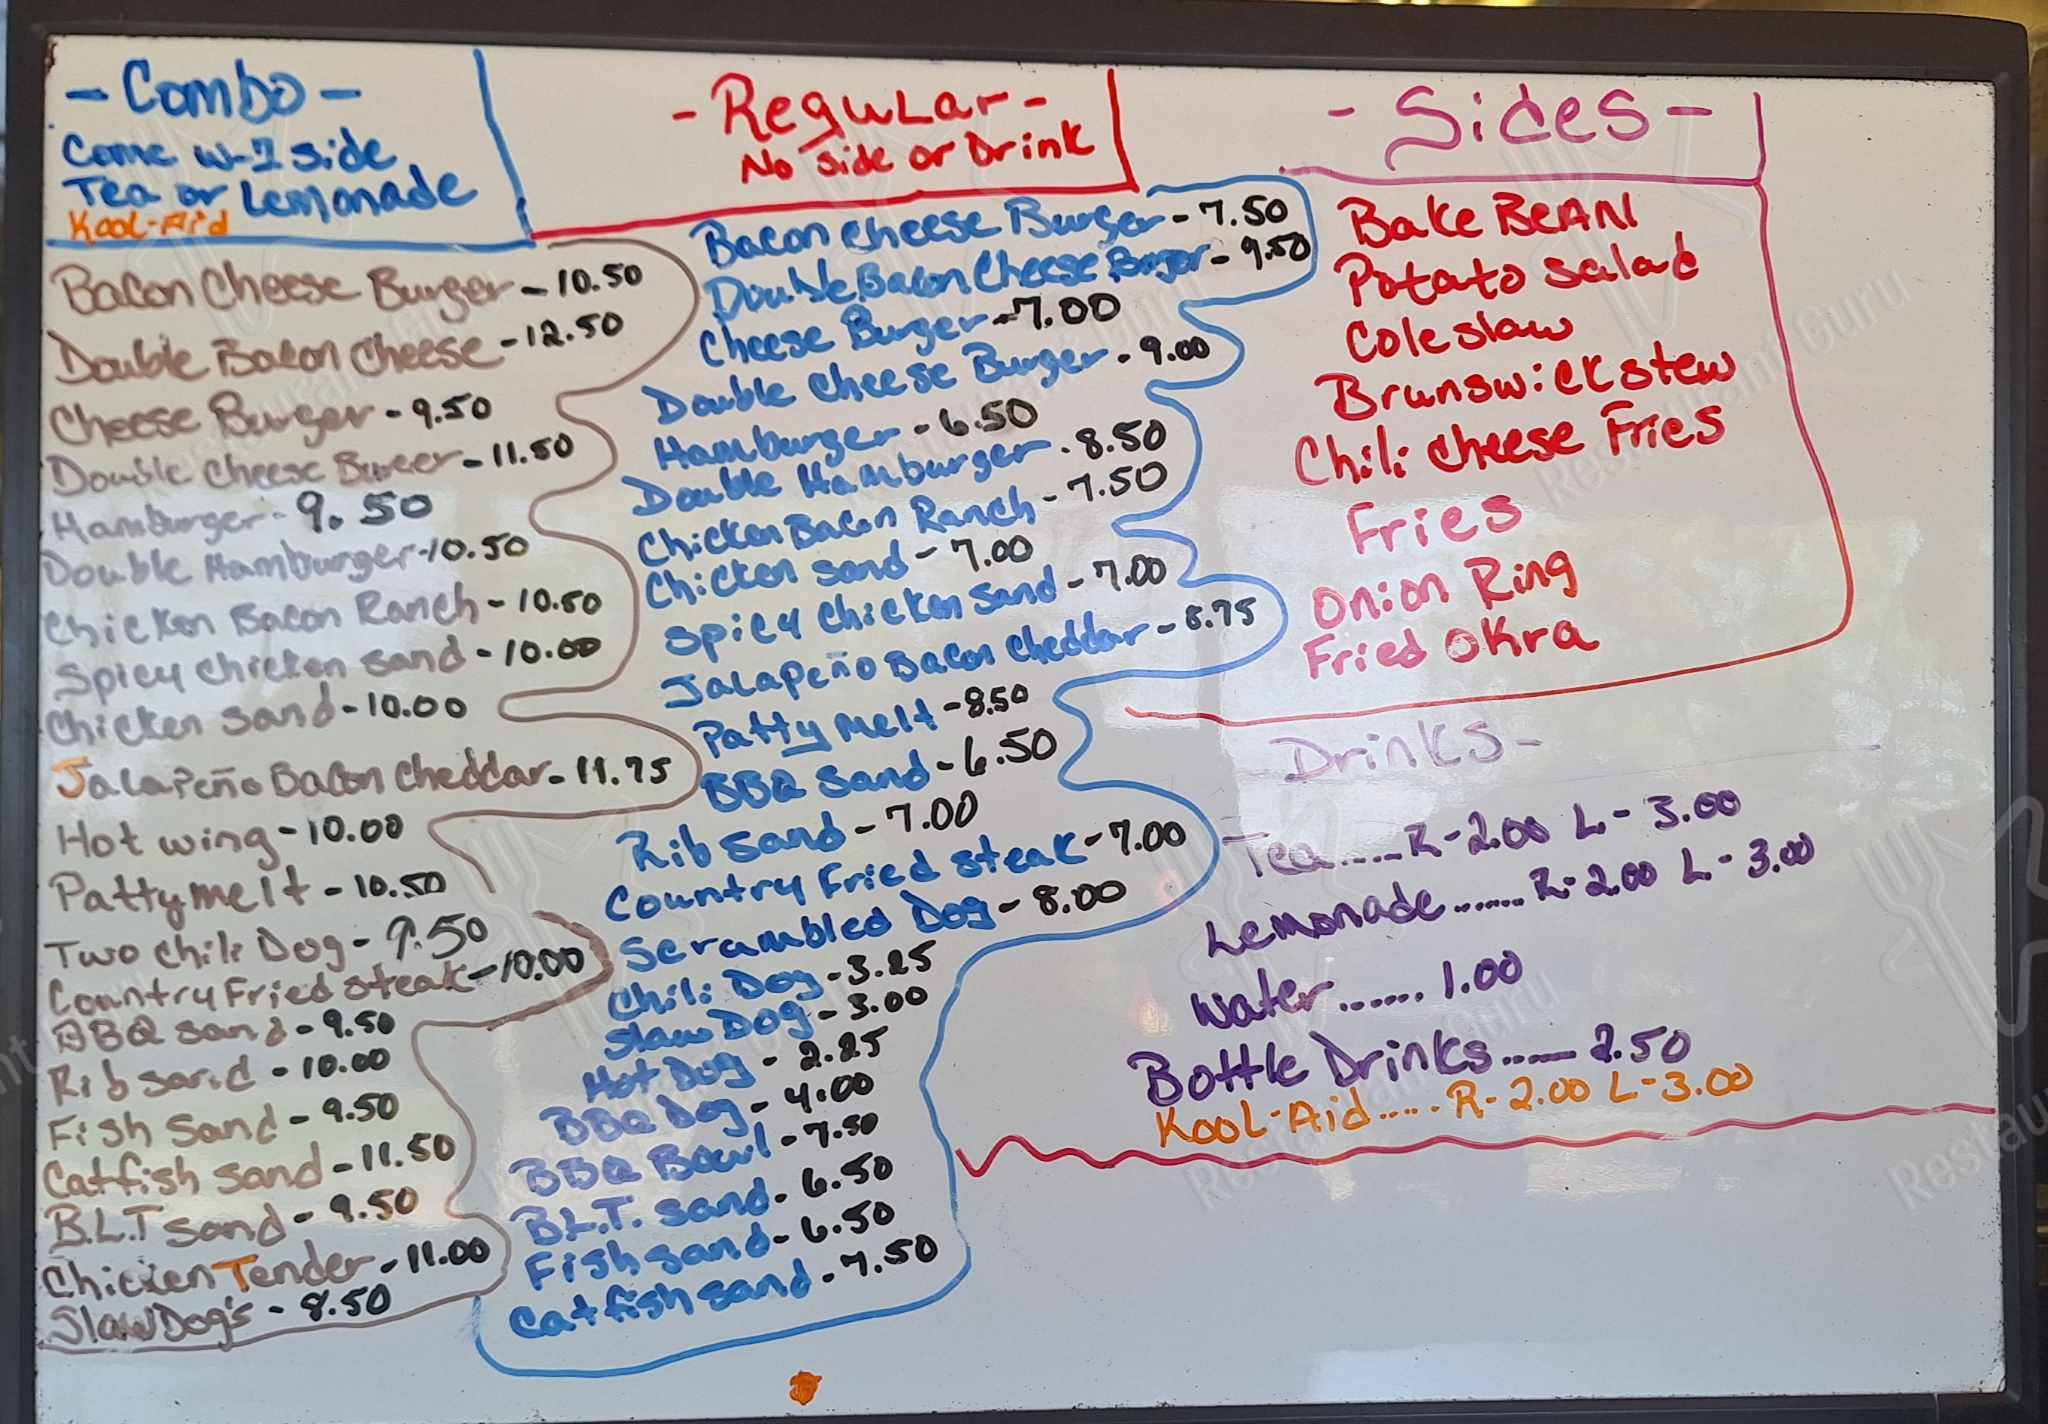 - Combo -
Come w-1 side
Tea or Lemonade
Kool-Aid
Bacon Cheese Burger - 10.50
Double Bacon Cheese - 12.50
Cheese Burger - 9.50
Double Cheese Burger - 11.50
Hamburger - 9.50
Double Hamburger - 10.50
Chicken Bacon Ranch - 10.50
Spicy Chicken Sand - 10.00
Chicken Sand - 10.00
Jalapeño Bacon Cheddar - 11.75
Hot wing - 10.00
Patty melt - 10.50
Two Chili Dog - 9.50
Country Fried steak - 10.00
BBQ Sand - 9.50
Rib Sand - 10.00
Fish Sand - 9.50
Catfish Sand - 11.50
B.L.T Sand - 9.50
Chicken Tender - 11.00
Slaw Dog's - 8.50
- Regular -
No side or Drink
Bacon Cheese Burger - 7.50
Double Bacon Cheese Burger - 9.50
Cheese Burger - 7.00
Double Cheese Burger - 9.00
Hamburger - 6.50
Double Hamburger - 8.50
Chicken Bacon Ranch - 7.50
Chicken Sand - 7.00
Spicy Chicken Sand - 7.00
Jalapeño Bacon Cheddar - 8.75
Patty melt - 8.50
BBQ Sand - 6.50
Rib Sand - 7.00
Country Fried steak - 7.00
Scrambled Dog - 8.00
Chili Dog - 3.25
Slaw Dog - 3.00
Hot Dog - 2.25
BBQ Dog - 4.00
BBQ Bowl - 7.50
B.L.T. Sand - 6.50
Fish Sand - 6.50
Catfish Sand - 7.50
- Sides -
Bake BEAN
Potato Salad
Cole slaw
Brunswick stew
Chili Cheese Fries
Fries
Onion Ring
Fried Okra
Drinks -
Tea ..... R-2.00 L-3.00
Lemonade ...... R-2.00 L-3.00
Water ...... 1.00
Bottle Drinks ...... 2.50
Kool-Aid ..... R-2.00 L-3.00
Restaurant Guru